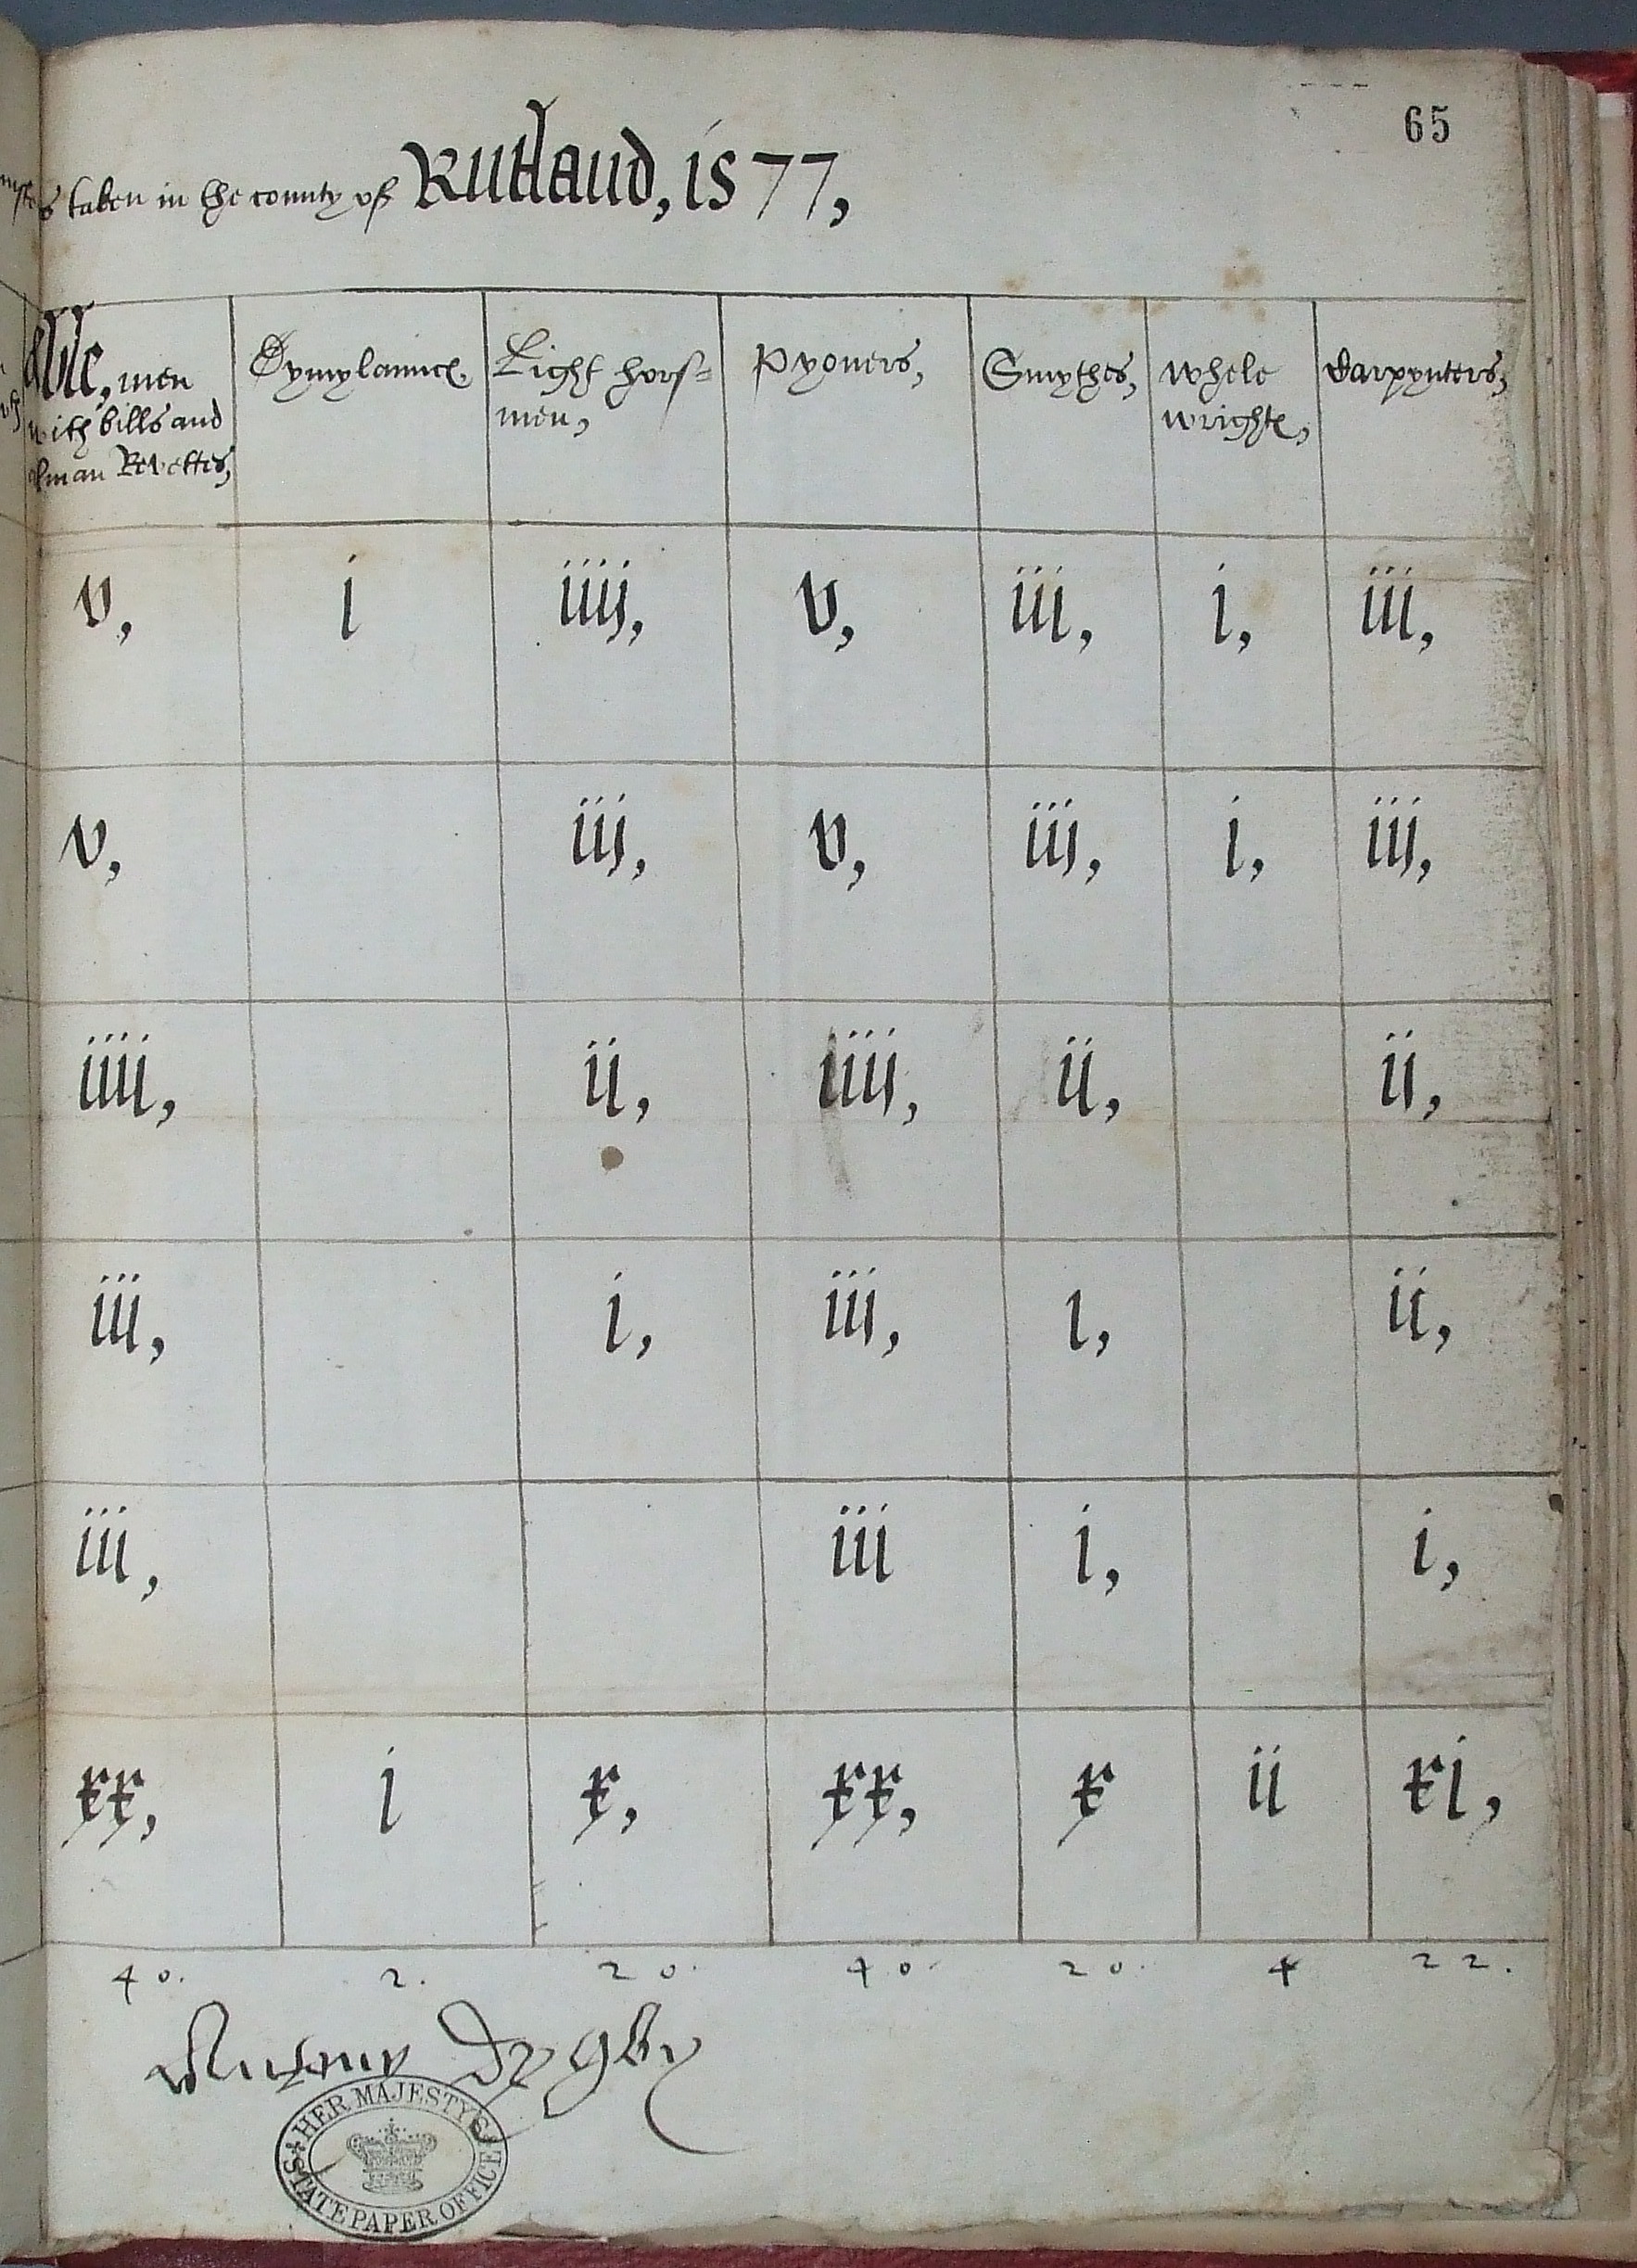 65
taken in the county of Rutland, 1577,
Able, men with bills and alman Revettes,
Dymylaunces
Light hors=
men,
Pyoners,
Smythes,
whele
wrightes,
Carpynters,
v, i iiij, v, iii, i, iii,
v, iij, v, iij, i, iij,
iiii, ii, iiij, ii, ii,
iii, i, iij, i, ii,
iii, iii i, i,
xx, i x, xx, x ii xi,
40. 2. 20. 40. 20. 4 22.
Antony Dygby
HER MAJESTY'S STATE PAPER OFFICE